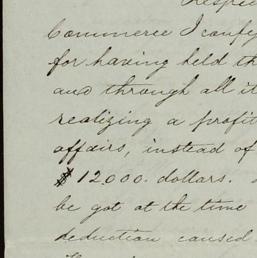 Respec
Commerce I con
for having held th
and through all it
realizing a profit
affairs, instead of
$12,000. dollars.
be got at the time
deduction caused